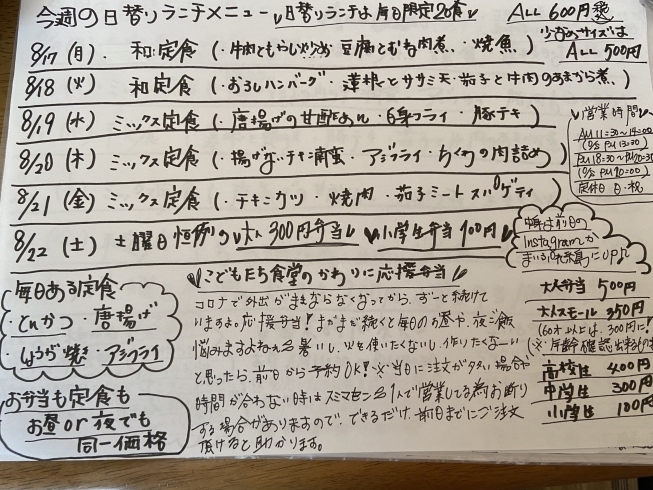 今週の日替りランチメニュー 日替りランチは毎日限定20食 ALL 600円
少なめサイズは ALL 500円
8/17 (月) 和定食 (・牛肉ともやし炒め 豆腐とむね肉煮・焼魚)
8/18 (火) 和定食 (・おろしハンバーグ・蓮根とササミ天・茄子と牛肉のあまから煮)
8/19 (水) ミックス定食 (・唐揚げの甘酢あん・白身フライ・豚テキ)
8/20 (木) ミックス定食 (・揚げないチキン南蛮・アジフライ・ちくわの肉詰め)
8/21 (金) ミックス定食 (・チキンカツ・焼肉・茄子ミートスパゲティ)
8/22 (土) 土曜日恒例の 大人300円弁当 小学生弁当100円
営業時間
AM11:30~14:00
PM18:30~PM20:30
定休日 日・祝
中身は前日の
Instagramか
まいぷれ糸島にUP♪
毎日ある定食
・とんかつ・唐揚げ
・しょうが焼き・アジフライ
お弁当も定食も
お昼or夜でも
同一価格
こどもたち食堂のかわりに応援弁当
コロナで外出がままならなくなってから、ずーと続けて
いますよ。応援弁当!まだまだ続くと毎日のお昼や、夜ご飯
悩みますよね 暑いし、火を使いたくないし、作りたくなーい
と思ったら、前日から予約OK!※当日に注文が多い場合や
時間が合わない時はスミマセン 1人で営業してる為お断り
する場合がありますので、できるだけ、前日までにご注文
頂けると助かります。
大人弁当 500円
大人スモール 350円
(60才以上は、300円に!
(※年齢確認出来るもの
高校生 400円
中学生 300円
小学生 100円